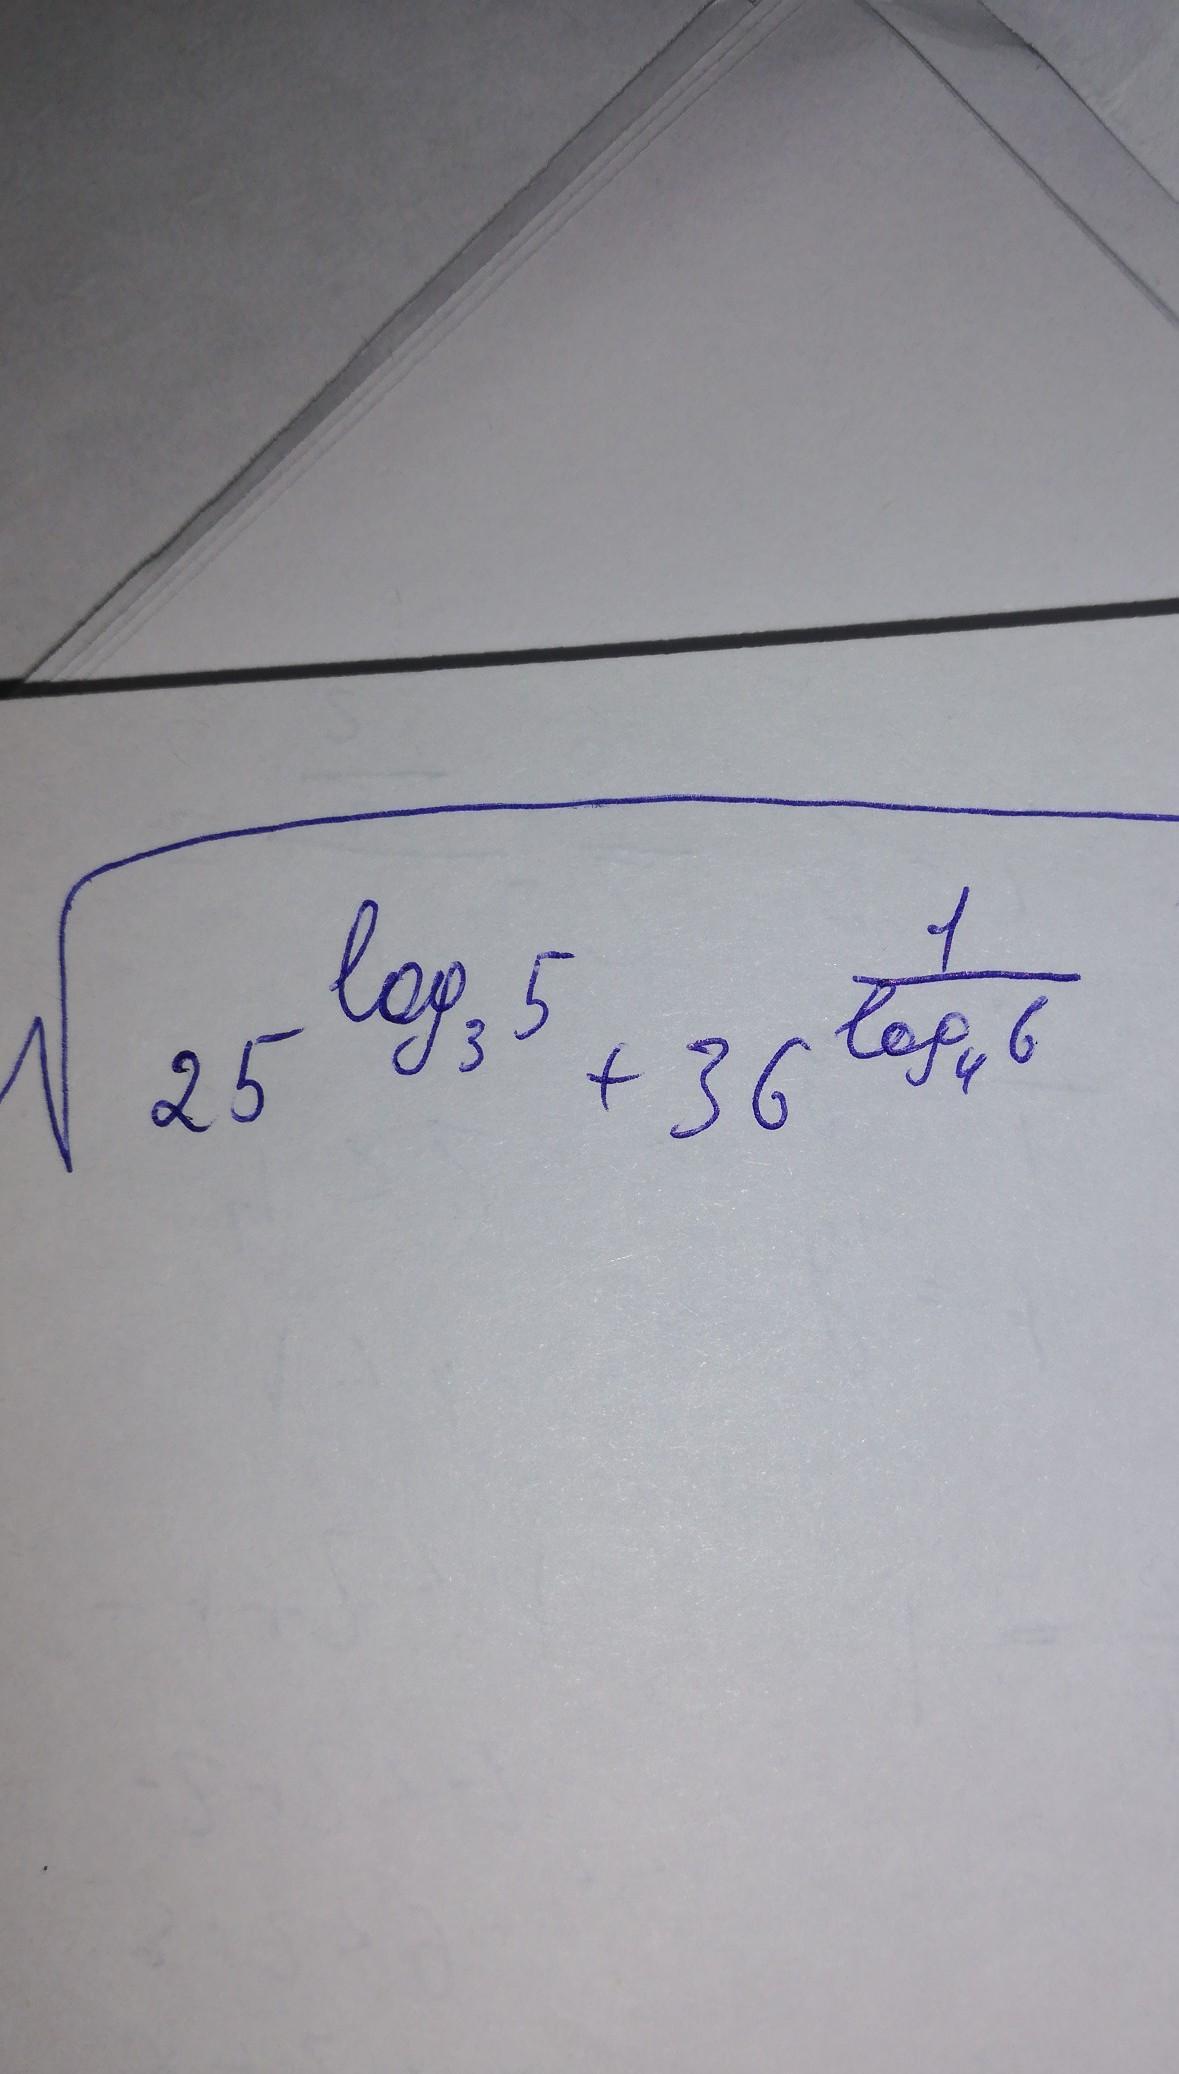 √25^log₃5 + 36^1/log₄6